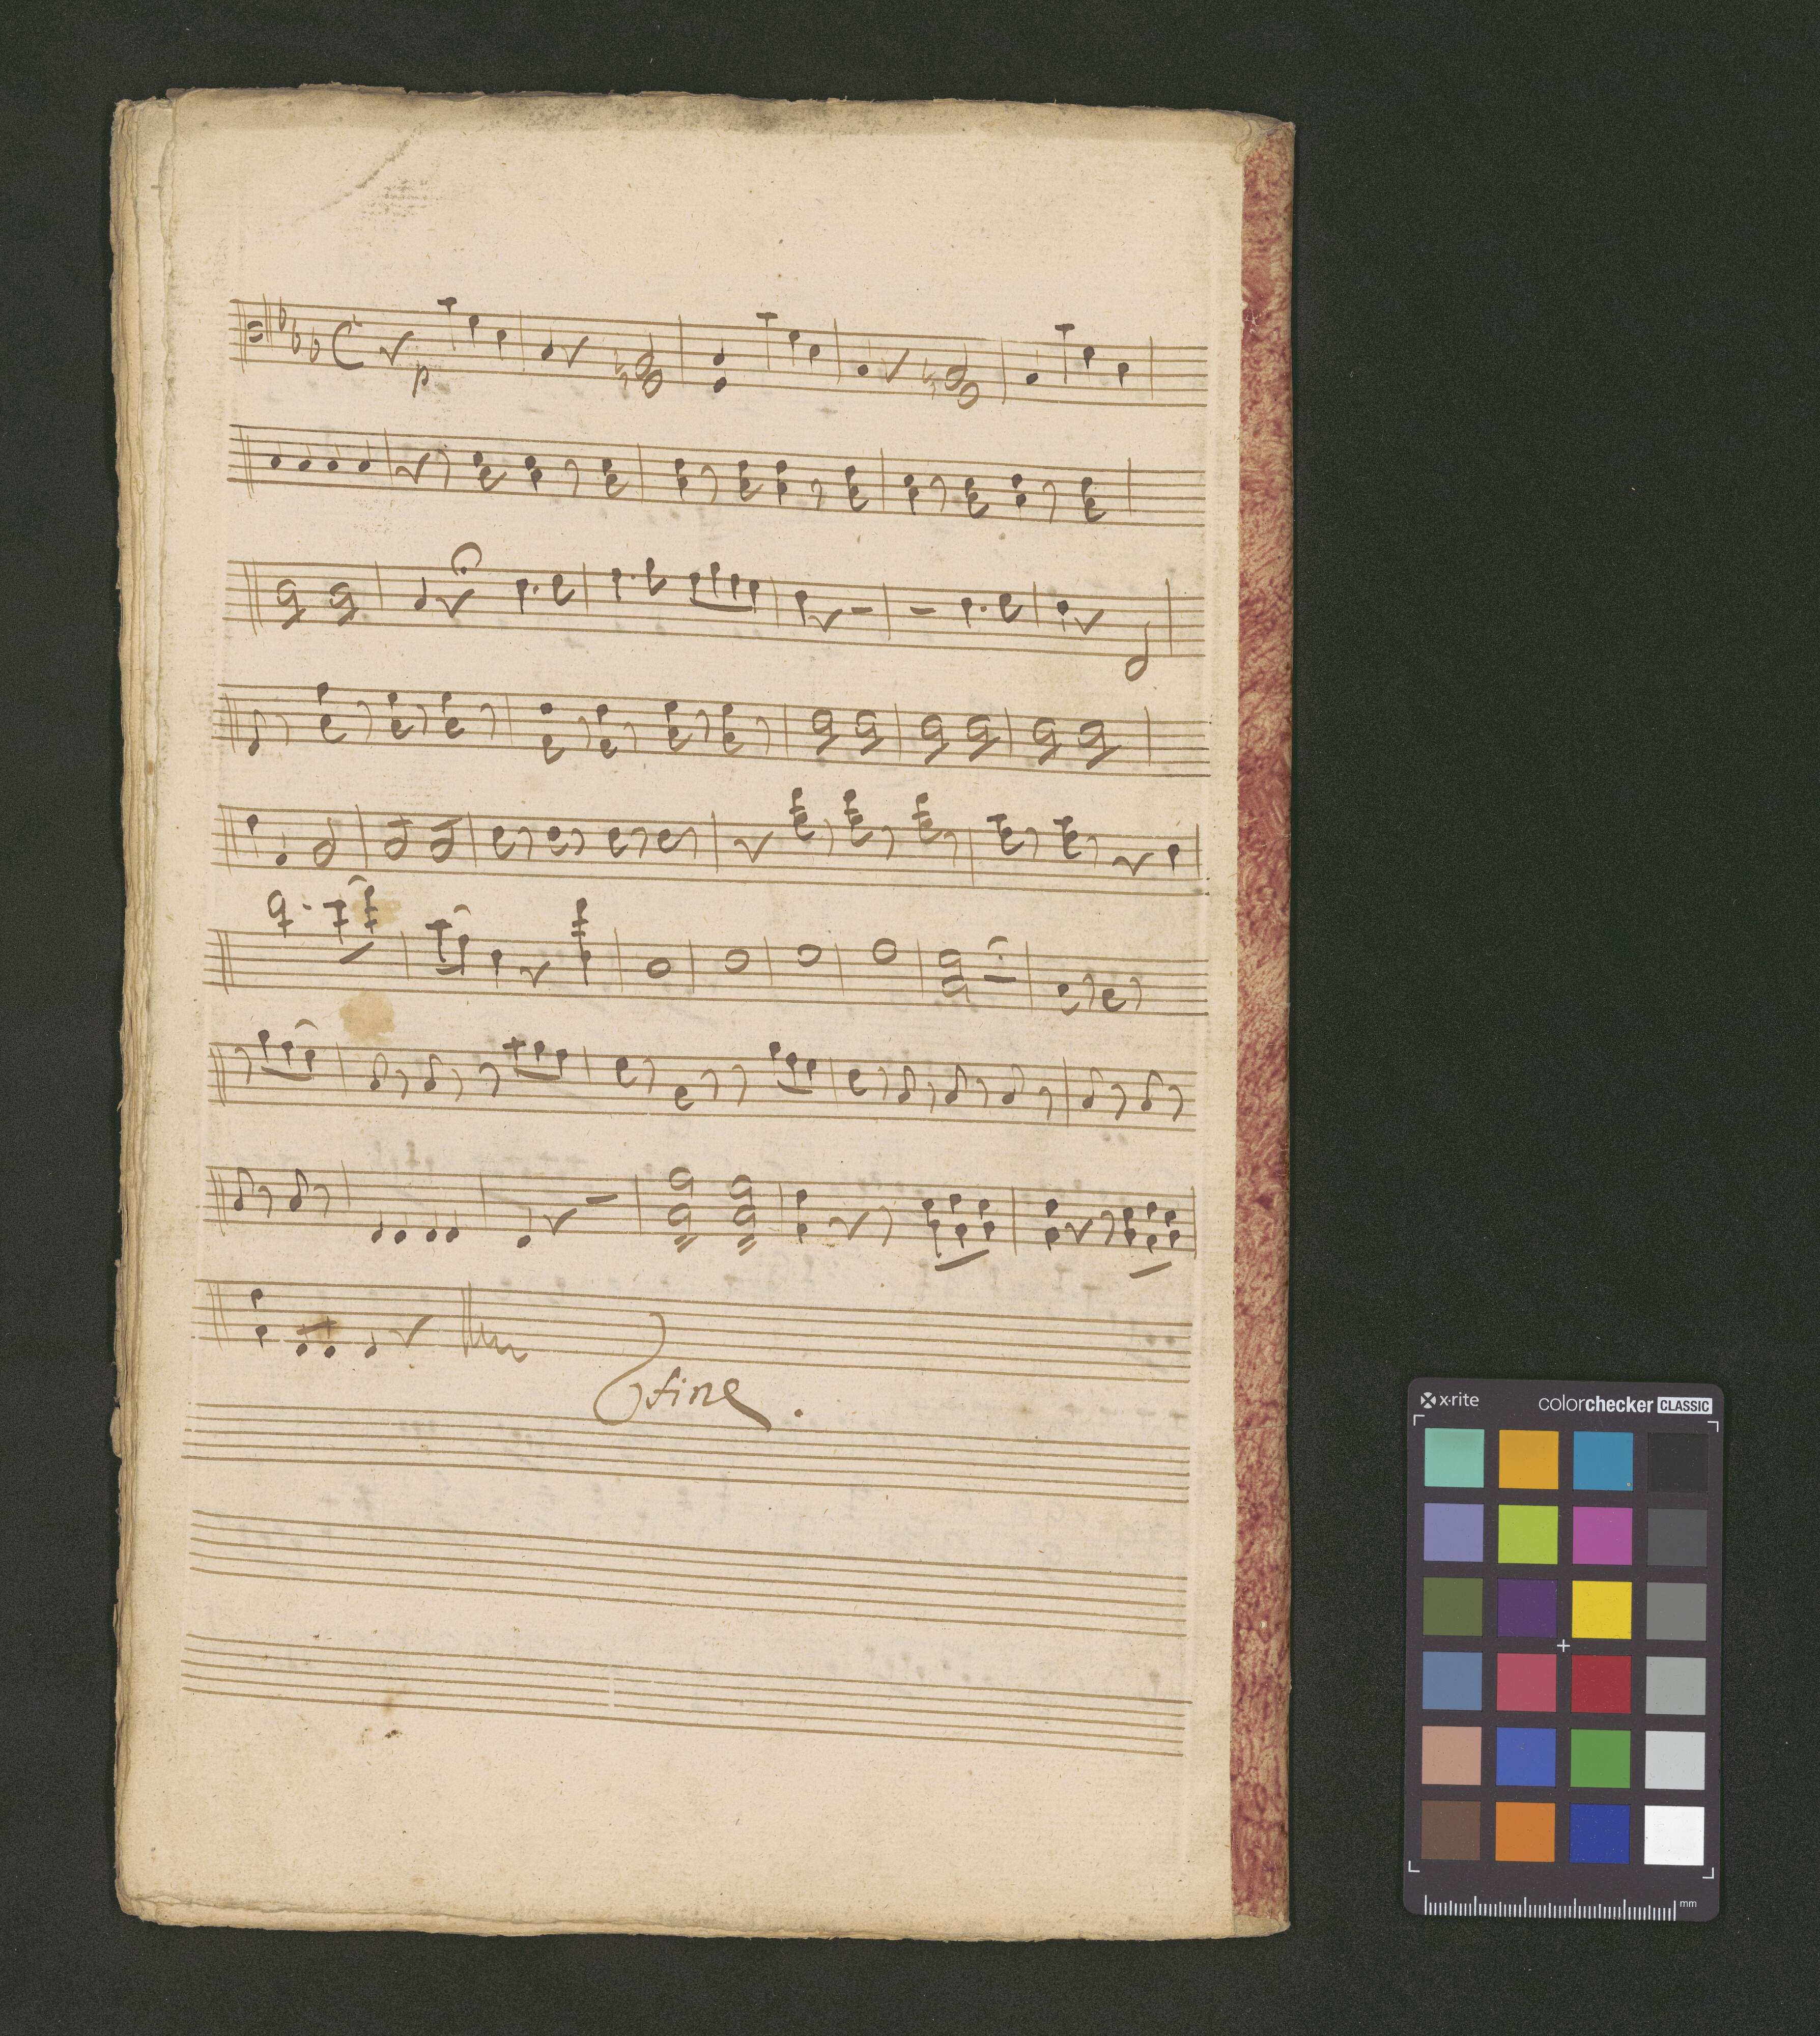 p
fine.
x-rite colorchecker CLASSIC
mm